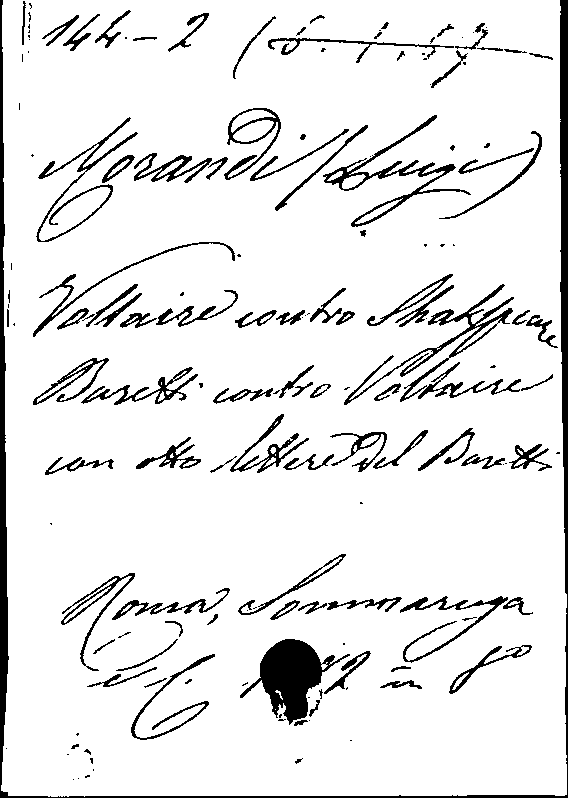 144-2 (5.1.57
Morandi (Luigi)
Voltaire contro Shakspeare
Baretti contro Voltaire
con otto lettere del Baretti
Roma, Sommaruga
e C. in 8º